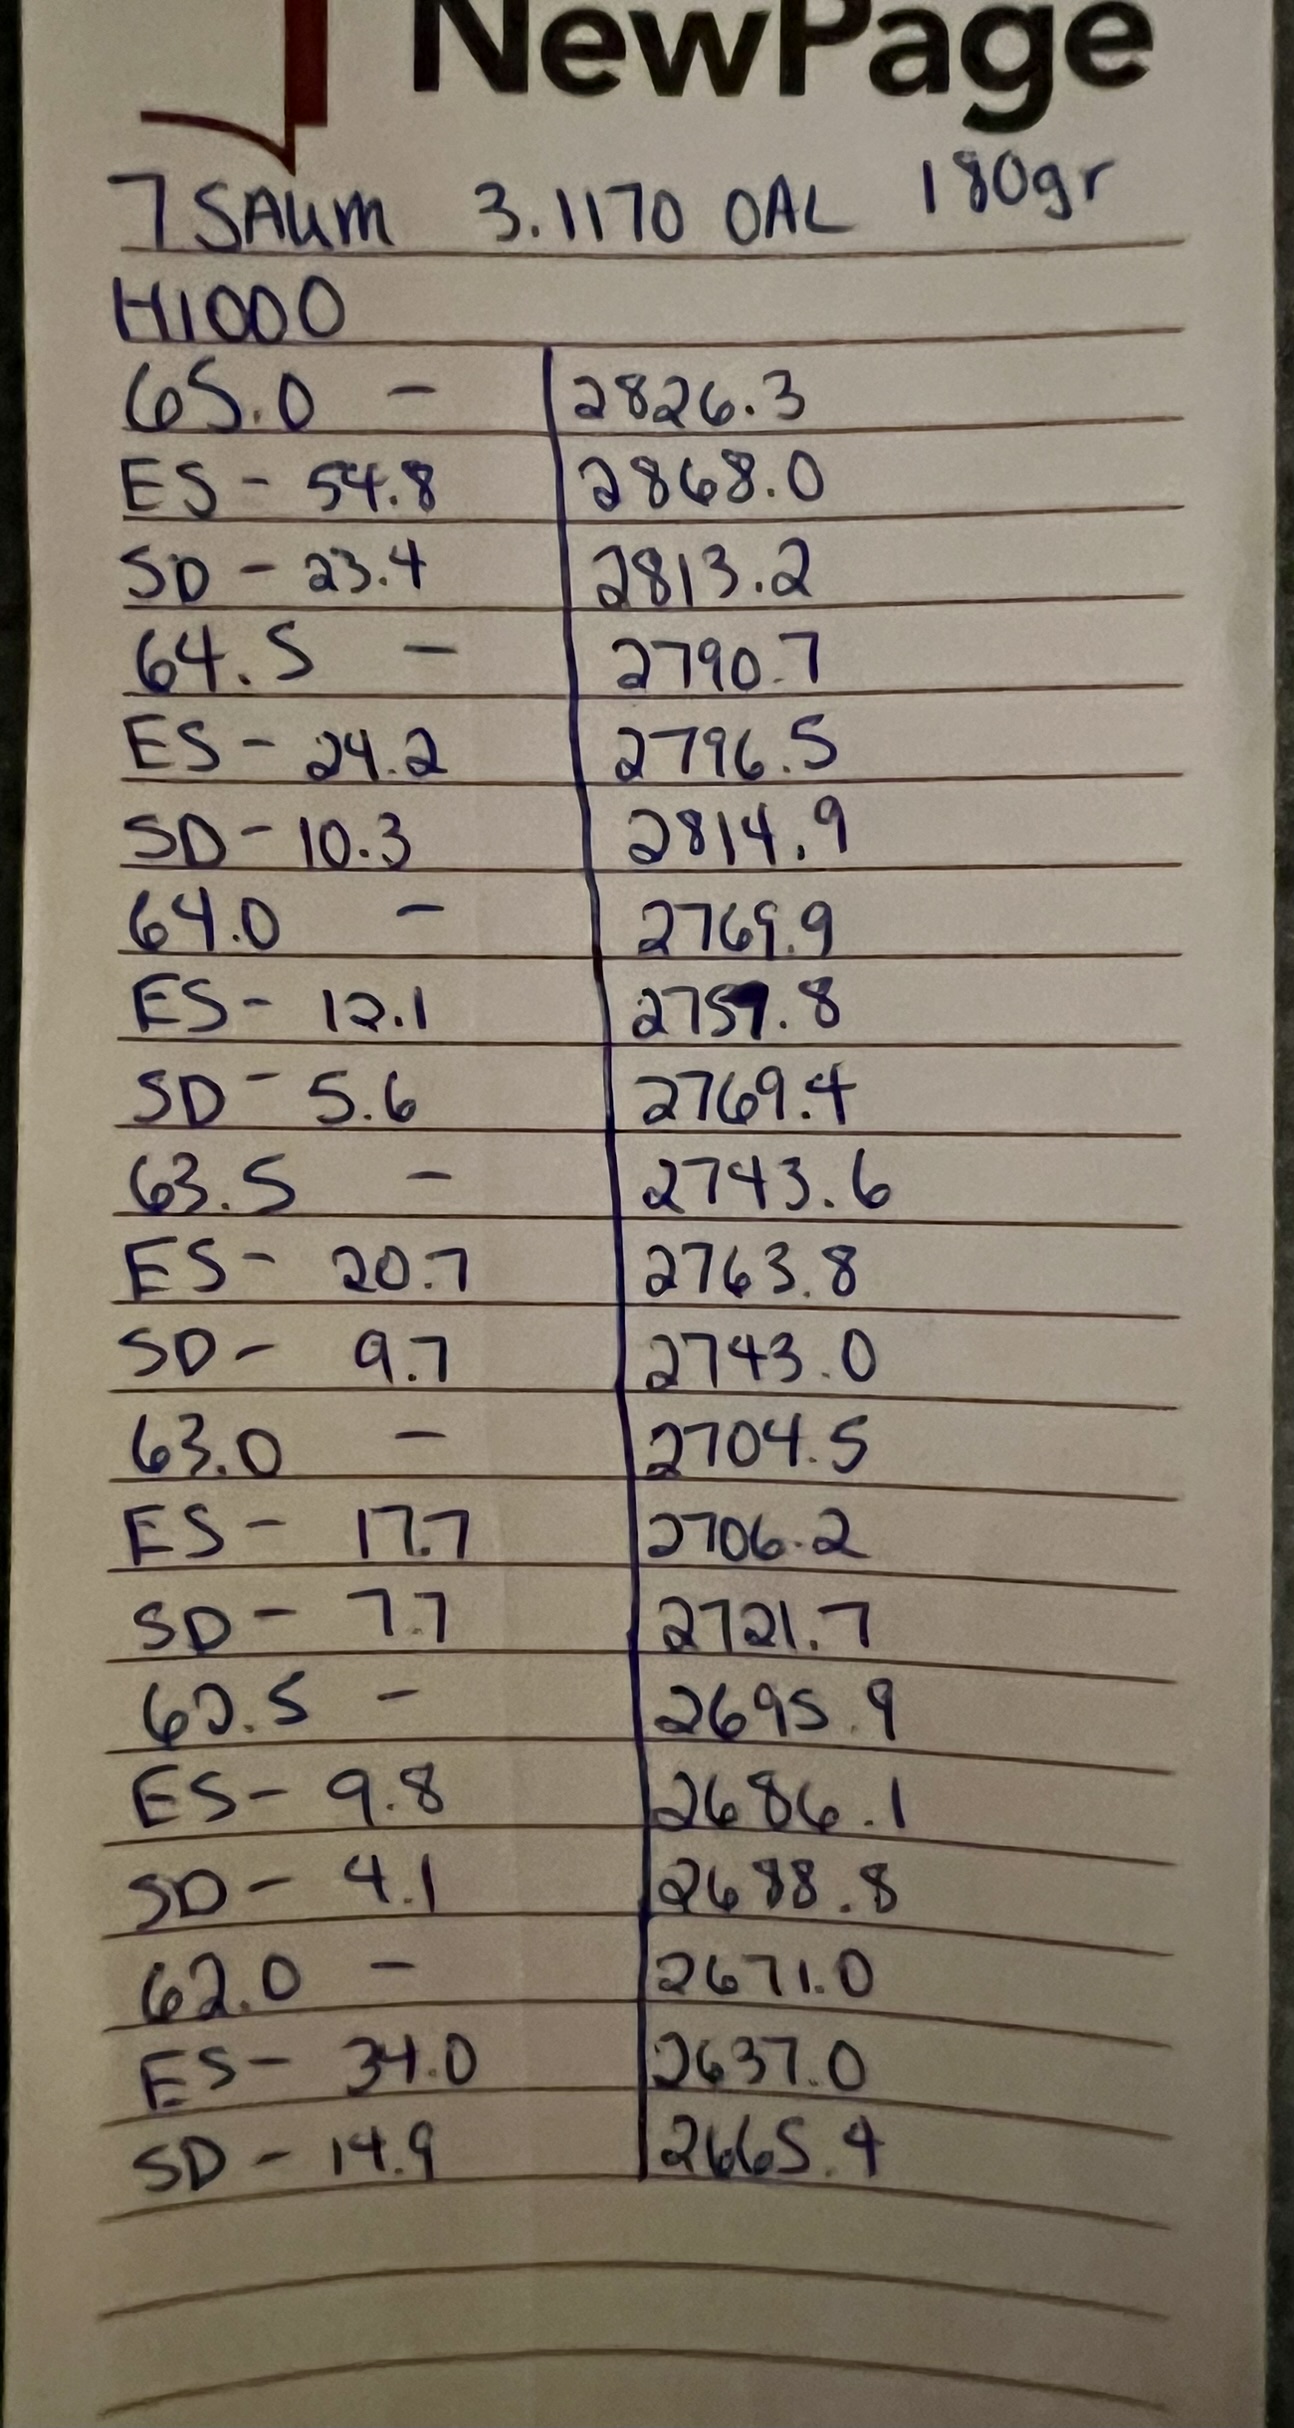 NewPage
7 SAUM 3.1170 OAL 180gr
H1000
65.0 - 2826.3
ES - 54.8 2868.0
SD - 23.4 2813.2
64.5 - 2790.7
ES - 24.2 2796.5
SD - 10.3 2814.9
64.0 - 2769.9
ES - 12.1 2757.8
SD - 5.6 2769.4
63.5 - 2743.6
ES - 20.7 2763.8
SD - 9.7 2743.0
63.0 - 2704.5
ES - 17.7 2706.2
SD - 7.7 2721.7
62.5 - 2695.9
ES - 9.8 2686.1
SD - 4.1 2688.8
62.0 - 2671.0
ES - 34.0 2637.0
SD - 14.9 2665.4